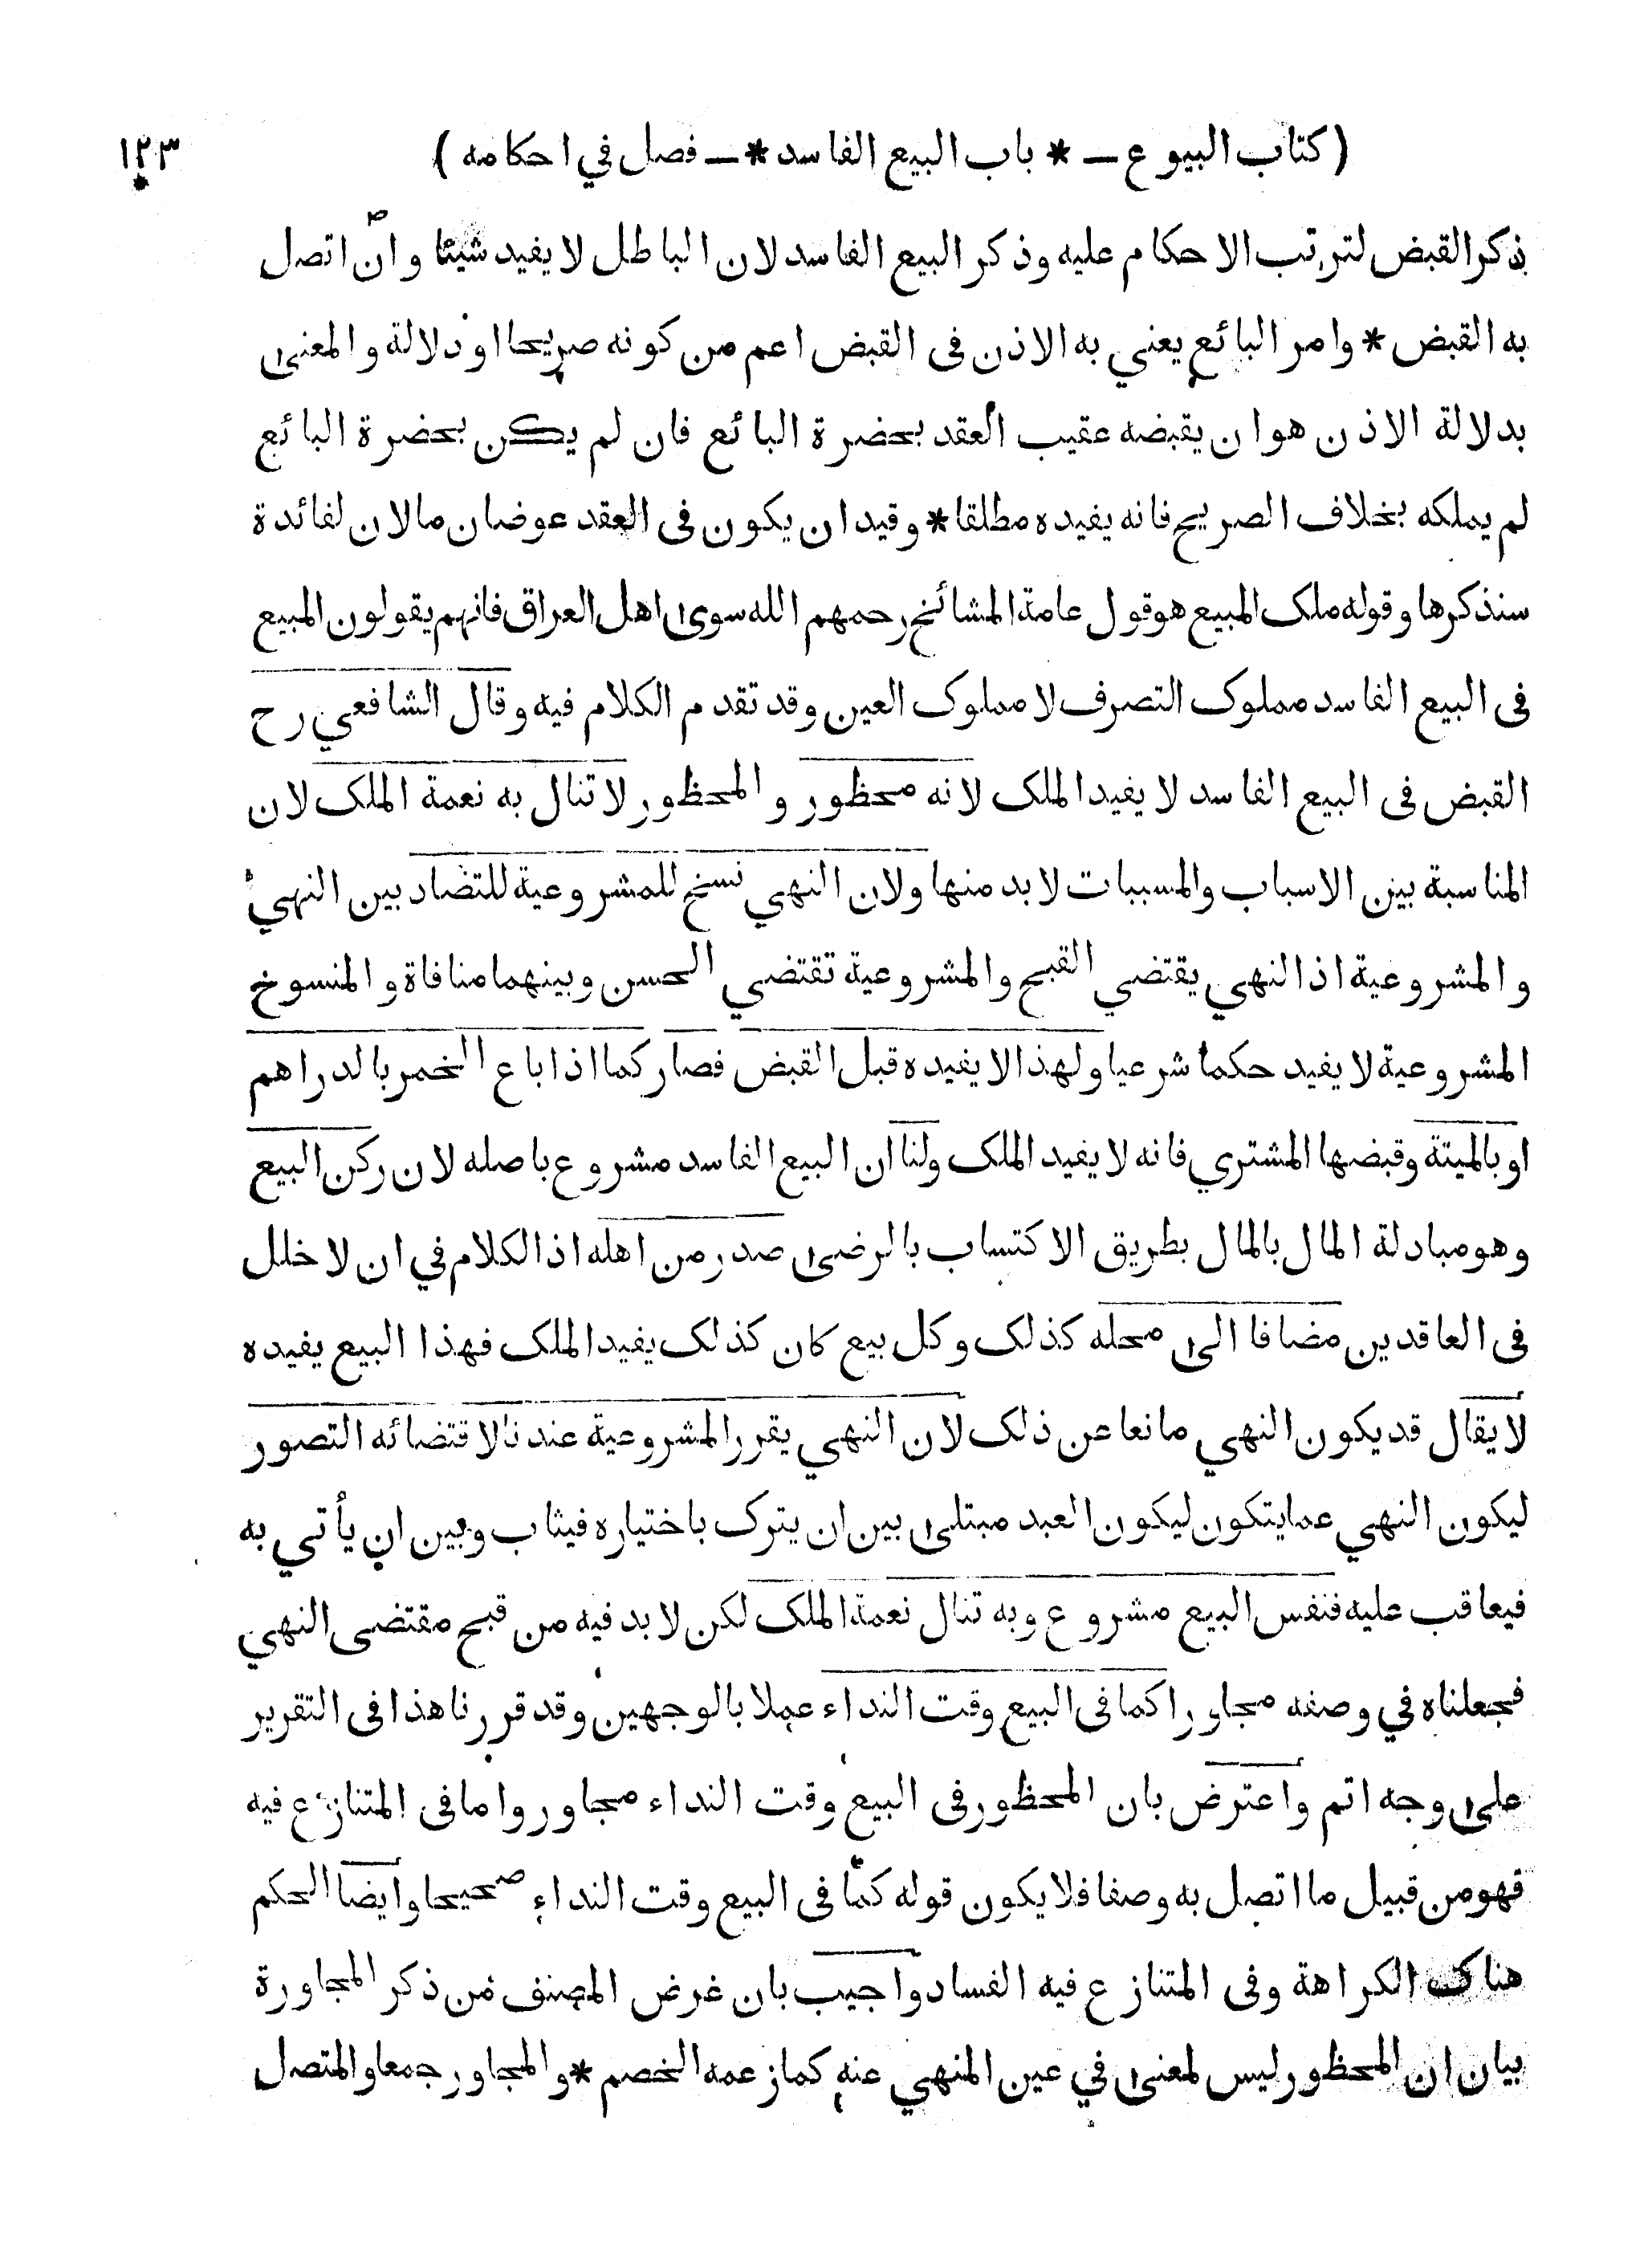 ( كتاب البيوع — * باب البيع الفاسد * — فصل في احكامه ) ١٢٣
ذكر القبض لترتب الاحكام عليه وذكر البيع الفاسد لان الباطل لا يفيد شيئا وان اتصل
به القبض * وامر البائع يعني به الاذن فى القبض اعم من كونه صريحا او دلالة والمعنى
بدلالة الاذن هو ان يقبضه عقيب العقد بحضرة البائع فان لم يكن بحضرة البائع
لم يملكه بخلاف الصريح فانه يفيده مطلقا * وقيد ان يكون فى العقد عوضان مالان لفائدة
سنذكرها وقوله ملك المبيع هو قول عامة المشائخ رحمهم الله سوى اهل العراق فانهم يقولون المبيع
فى البيع الفاسد مملوك التصرف لا مملوك العين وقد تقدم الكلام فيه وقال الشافعي رح
القبض فى البيع الفاسد لا يفيد الملك لانه محظور والمحظور لا تنال به نعمة الملك لان
المناسبة بين الاسباب والمسببات لا بد منها ولان النهي نسخ للمشروعية للتضاد بين النهي
والمشروعية اذ النهي يقتضي القبح والمشروعية تقتضي الحسن وبينهما منافاة والمنسوخ
المشروعية لا يفيد حكما شرعيا ولهذا لا يفيده قبل القبض فصار كما اذا باع الخمر بالدراهم
او بالميتة وقبضها المشتري فانه لا يفيد الملك ولنا ان البيع الفاسد مشروع باصله لان ركن البيع
وهو مبادلة المال بالمال بطريق الاكتساب بالرضى صدر من اهله اذ الكلام في ان لا خلل
فى العاقدين مضافا الى محله كذلك وكل بيع كان كذلك يفيد الملك فهذا البيع يفيده
لا يقال قد يكون النهي مانعا عن ذلك لان النهي يقرر المشروعية عندنا لاقتضائه التصور
ليكون النهي عما يتكون ليكون العبد مبتلى بين ان يترك باختياره فيثاب وبين ان يأتي به
فيعاقب عليه فنفس البيع مشروع وبه تنال نعمة الملك لكن لا بد فيه من قبح مقتضى النهي
فجعلناه في وصفه مجاورا كما فى البيع وقت النداء عملا بالوجهين وقد قررنا هذا فى التقرير
على وجه اتم واعترض بان المحظور فى البيع وقت النداء مجاور واما فى المتنازع فيه
فهو من قبيل ما اتصل به وصفا فلا يكون قوله كما فى البيع وقت النداء صحيحا وايضا الحكم
هناك الكراهة وفى المتنازع فيه الفساد واجيب بان غرض المصنف من ذكر المجاورة
بيان ان المحظور ليس لمعنى في عين المنهي عنه كما زعمه الخصم * والمجاور جمعا والمتصل